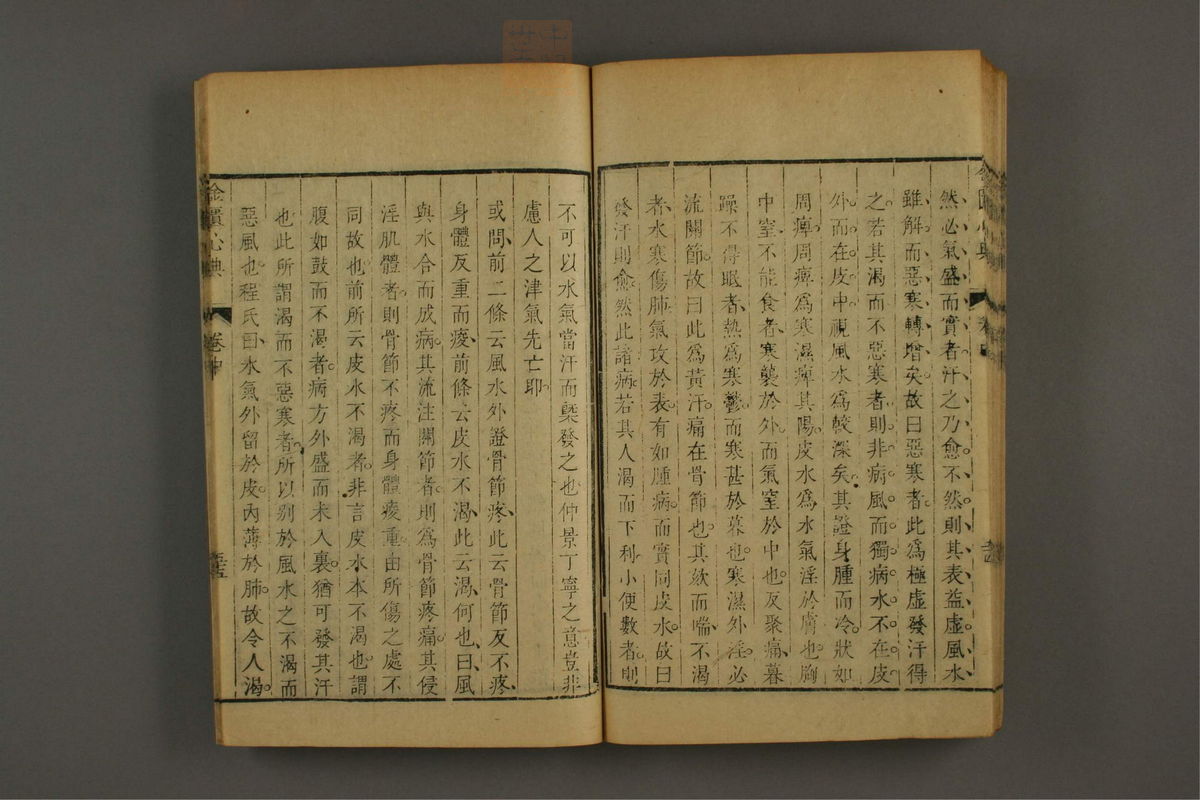 然必氣盛而實者汗之乃愈不然則其表益虛風水
雖解而惡寒轉增矣故曰惡寒者此爲極虛發汗得
之若其渴而不惡寒者則非病風而獨病水不在皮
外而在皮中視風水爲較深矣其證身腫而冷狀如
周痺周痺爲寒濕痺其陽皮水爲水氣淫於膚也胸
中窒不能食者寒襲於外而氣窒於中也反聚痛暮
躁不得眠者熱爲寒鬱而寒甚於暮也寒濕外淫必
流關節故曰此爲黃汗痛在骨節也其欬而喘不渴
者水寒傷肺氣攻於表有如腫病而實同皮水故曰
發汗則愈然此諸病若其人渴而下利小便數者則
不可以水氣當汗而槩發之也仲景丁寧之意豈非
慮人之津氣先亡耶
或問前二條云風水外證骨節疼此云骨節反不疼
身體反重而痠前條云皮水不渴此云渴何也曰風
與水合而成病其流注關節者則爲骨節疼痛其侵
淫肌體者則骨節不疼而身體痠重由所傷之處不
同故也前所云皮水不渴者非言皮水本不渴也謂
腹如鼓而不渴者病方外盛而未入裏猶可發其汗
也此所謂渴而不惡寒者所以别於風水之不渴而
惡風也程氏曰水氣外留於皮內薄於肺故令人渴
金匱心典
卷中